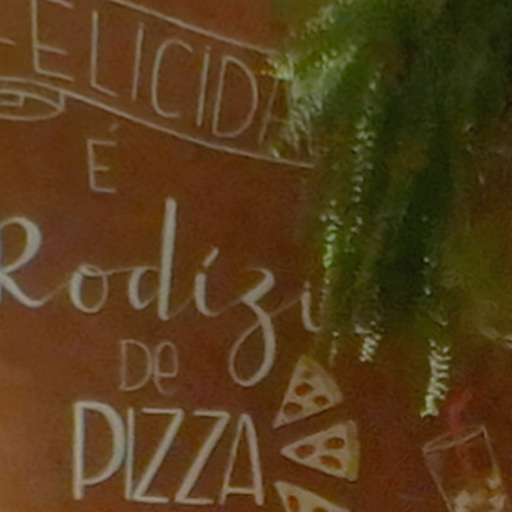 FELICIDA
É
Rodízi
De
PIZZA